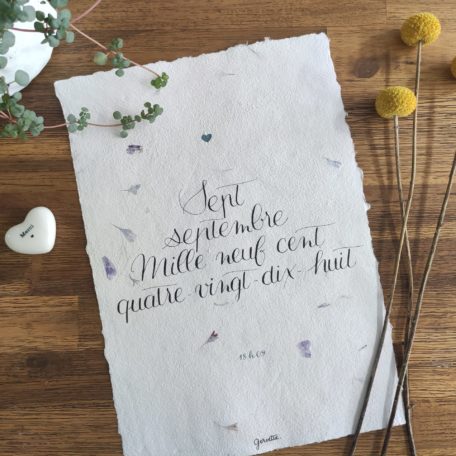 Sept
septembre
Mille neuf cent
quatre-vingt-dix-huit
18h09
Merci